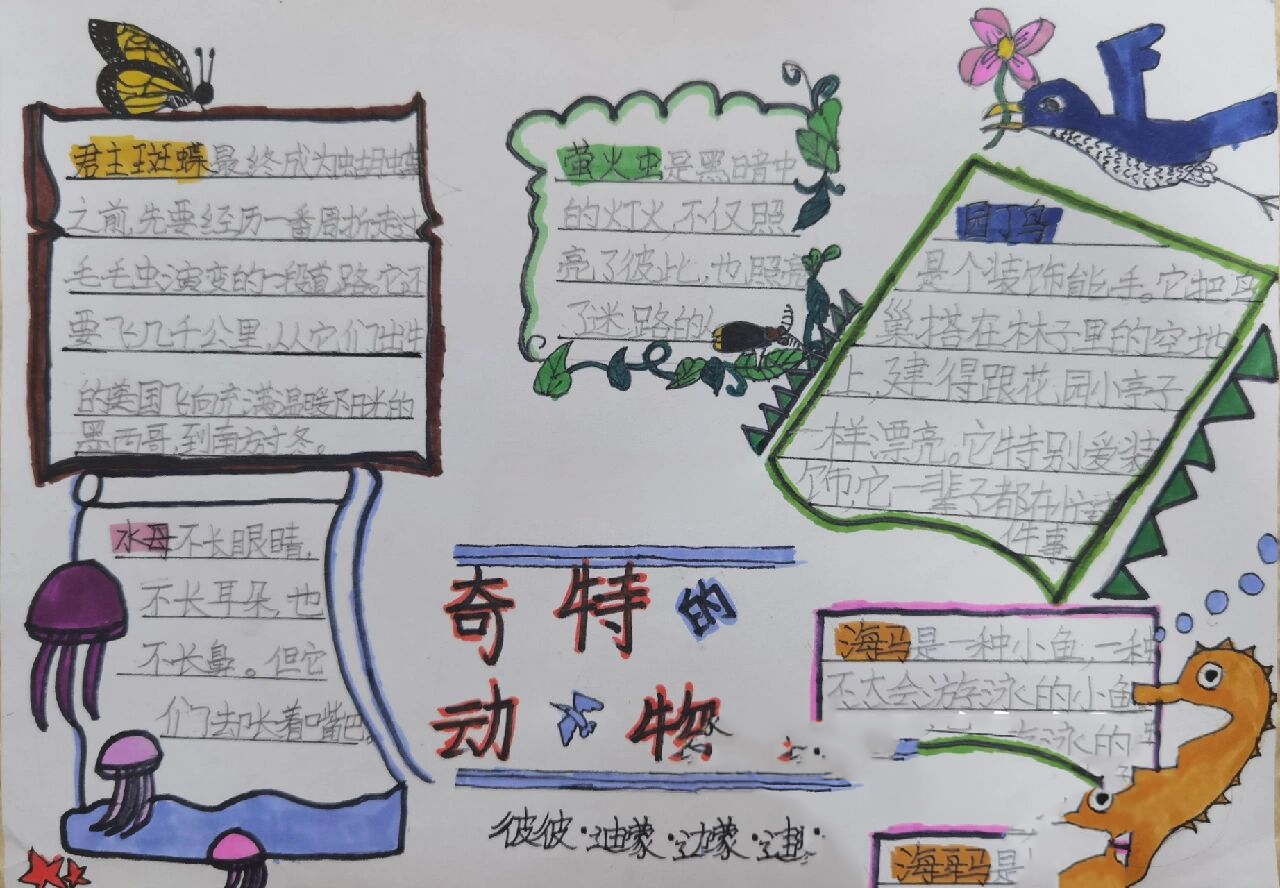 君主斑蝶最终成为蝴蝶
之前,先要经历一番周折走过
毛毛虫演变的一段道路。它还
要飞几千公里,从它们出生
的美国飞向充满温暖阳光的
墨西哥,到南方过冬。
萤火虫是黑暗中
的灯火,不仅照
亮了彼此,也照亮
了迷路的人
园丁鸟
是个装饰能手。它把鸟
巢搭在林子里的空地
上,建得跟花园小亭子
一样漂亮。它特别爱装
饰,它一辈子都在忙这
件事
水母不长眼睛,
不长耳朵,也
不长鼻。但它
们却长着嘴巴。
奇特的
动物
海马是一种小鱼,一种
不太会游泳的小鱼
泳的
海马是